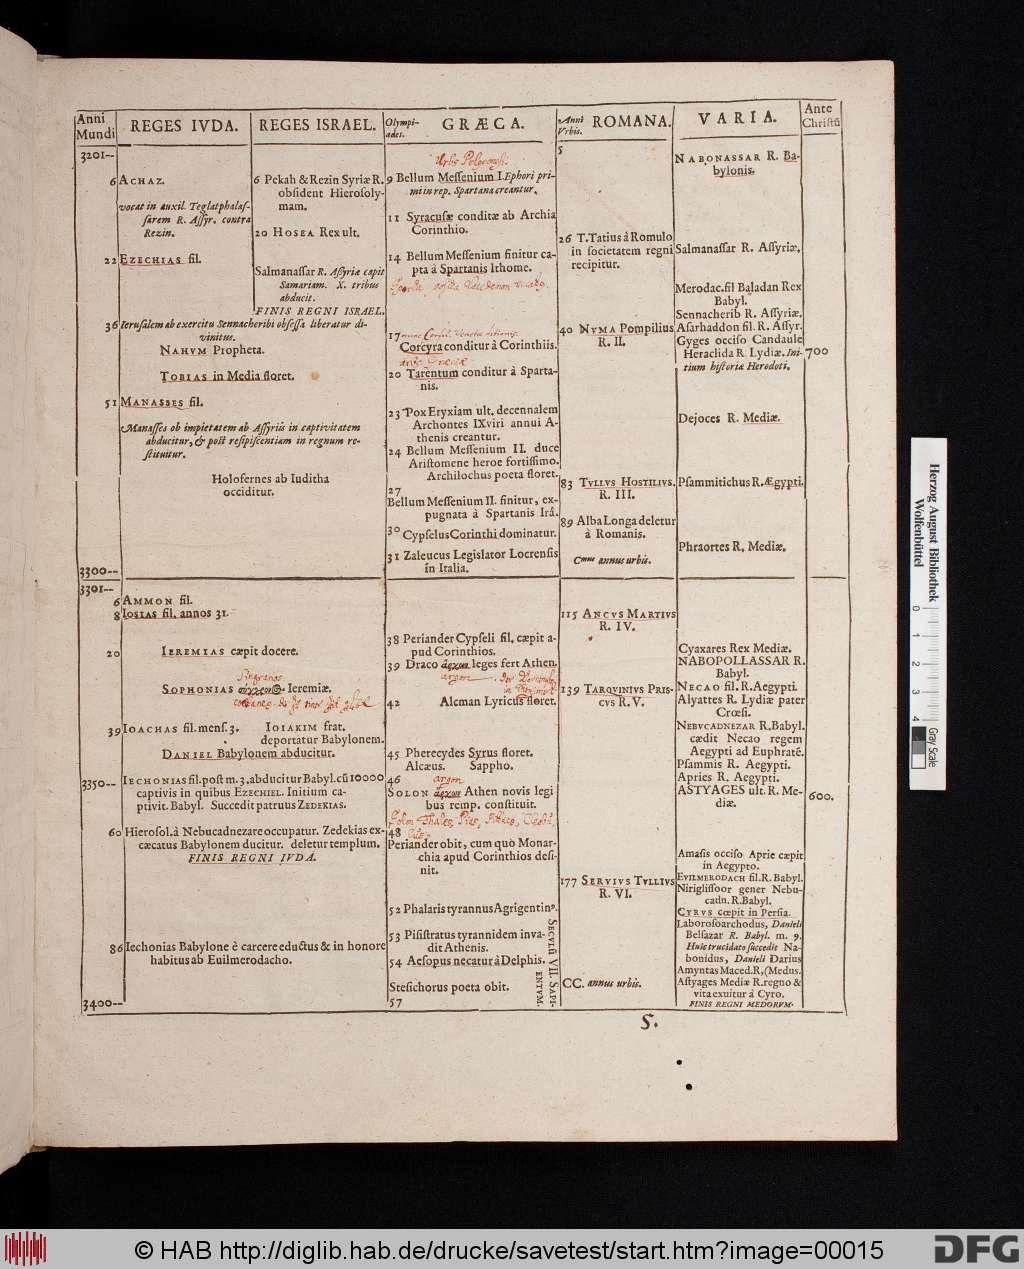 Anni
Mundi
REGES IVDA.
REGES ISRAEL.
Olympi-
ades.
GRÆCA.
Anni
Vrbis.
ROMANA.
VARIA.
Ante
Christū
3201--
6 ACHAZ.
vocat in auxil. Teglatphalas-
sarem R. Assyr. contra
Rezin.
22 EZECHIAS fil.
36 Ierusalem ab exercitu Sennacheribi obsessa liberatur di-
vinitus.
NAHVM Propheta.
TOBIAS in Media floret.
51 MANASSES fil.
Manasses ob impietatem ab Assyriis in captivitatem
abducitur, & post resipiscentiam in regnum re-
stituitur.
Holofernes ab Iuditha
occiditur.
3300--
6 Pekah & Rezin Syriæ R.
obsident Hierosoly-
mam.
20 HOSEA Rex ult.
Salmanassar R. Assyriæ capit
Samariam. X. tribus
abducit.
FINIS REGNI ISRAEL.
9 Bellum Messenium I. Ephori pri-
mi in rep. Spartana creantur.
11 Syracusæ conditæ ab Archia
Corinthio.
14 Bellum Messenium finitur ca-
pta à Spartanis Ithome.
17
Corcyra conditur à Corinthiis.
20 Tarentum conditur à Sparta-
nis.
23 Pox Eryxiam ult. decennalem
Archontes IXviri annui A-
thenis creantur.
24 Bellum Messenium II. duce
Aristomene heroe fortissimo.
Archilochus poeta floret.
27
Bellum Messenium II. finitur, ex-
pugnata à Spartanis Irâ.
30 Cypselus Corinthi dominatur.
31 Zaleucus Legislator Locrensis
in Italia.
5
26 T. Tatius à Romulo
in societatem regni
recipitur.
40 NVMA Pompilius
R. II.
83 TVLLVS HOSTILIVS.
R. III.
89 Alba Longa deletur
à Romanis.
Cmus annus urbis.
NABONASSAR R. Ba-
bylonis.
Salmanassar R. Assyriæ.
Merodac. fil Baladan Rex
Babyl.
Sennacherib R. Assyriæ.
Asarhaddon fil. R. Assyr.
Gyges occiso Candaule
Heraclida R. Lydiæ. Ini-
tium historiæ Herodoti.
700
Dejoces R. Mediæ.
Psammitichus R. Ægypti.
Phraortes R. Mediæ.
3301--
6 AMMON fil.
8 IOSIAS fil. annos 31.
20
IEREMIAS cœpit docere.
SOPHONIAS Ieremiæ.
39 IOACHAS fil. mens. 3. IOIAKIM frat.
deportatur Babylonem.
DANIEL Babylonem abducitur.
3350-- IECHONIAS fil. post m. 3. abducitur Babyl. cū 10000
captivis in quibus EZECHIEL. Initium ca-
ptivit. Babyl. Succedit patruus ZEDEKIAS.
60 Hierosol. à Nebucadnezare occupatur. Zedekias ex-
cæcatus Babylonem ducitur. deletur templum.
FINIS REGNI IVDA.
86 Iechonias Babylone è carcere eductus & in honore
habitus ab Euilmerodacho.
3400--
38 Periander Cypseli fil. cœpit a-
pud Corinthios.
39 Draco ἄρχων leges fert Athen.
argon
42 Alcman Lyricus floret.
45 Pherecydes Syrus floret.
Alcæus. Sappho.
46 argon
SOLON ἄρχων Athen novis legi
bus remp. constituit.
48
Periander obit, cum quo Monar-
chia apud Corinthios desi-
nit.
52 Phalaris tyrannus Agrigentinꝰ.
53 Pisistratus tyrannidem inva-
dit Athenis.
54 Aesopus necatur à Delphis.
Stesichorus poeta obit.
57
SECVLŪ VII. SAPI-
ENTVM.
115 ANCVS MARTIVS
R. IV.
139 TARQVINIVS PRIS-
CVS R. V.
177 SERVIVS TVLLIVS
R. VI.
CC. annus urbis.
Cyaxares Rex Mediæ.
NABOPOLLASSAR R.
Babyl.
NECAO fil. R. Aegypti.
Alyattes R. Lydiæ pater
Crœsi.
NEBVCADNEZAR R. Babyl.
cædit Necao regem
Aegypti ad Euphratē.
Psammis R. Aegypti.
Apries R. Aegypti.
ASTYAGES ult. R. Me-
diæ.
600.
Amasis occiso Aprie cœpit
in Aegypto.
EVILMERODACH fil. R. Babyl.
Niriglissoor gener Nebu-
cadn. R. Babyl.
CYRVS cœpit in Persia.
Laborosoarchodus, Danieli
Belsazar R. Babyl. m. 9.
Huic trucidato succedit Na-
bonidus, Danieli Darius
Amyntas Maced. R. (Medus.
Astyages Mediæ R. regno &
vita exuitur à Cyro.
FINIS REGNI MEDORVM.
5.
Herzog August Bibliothek
Wolfenbüttel
0 1 2 3 4
Gray Scale
© HAB http://diglib.hab.de/drucke/savetest/start.htm?image=00015
DFG